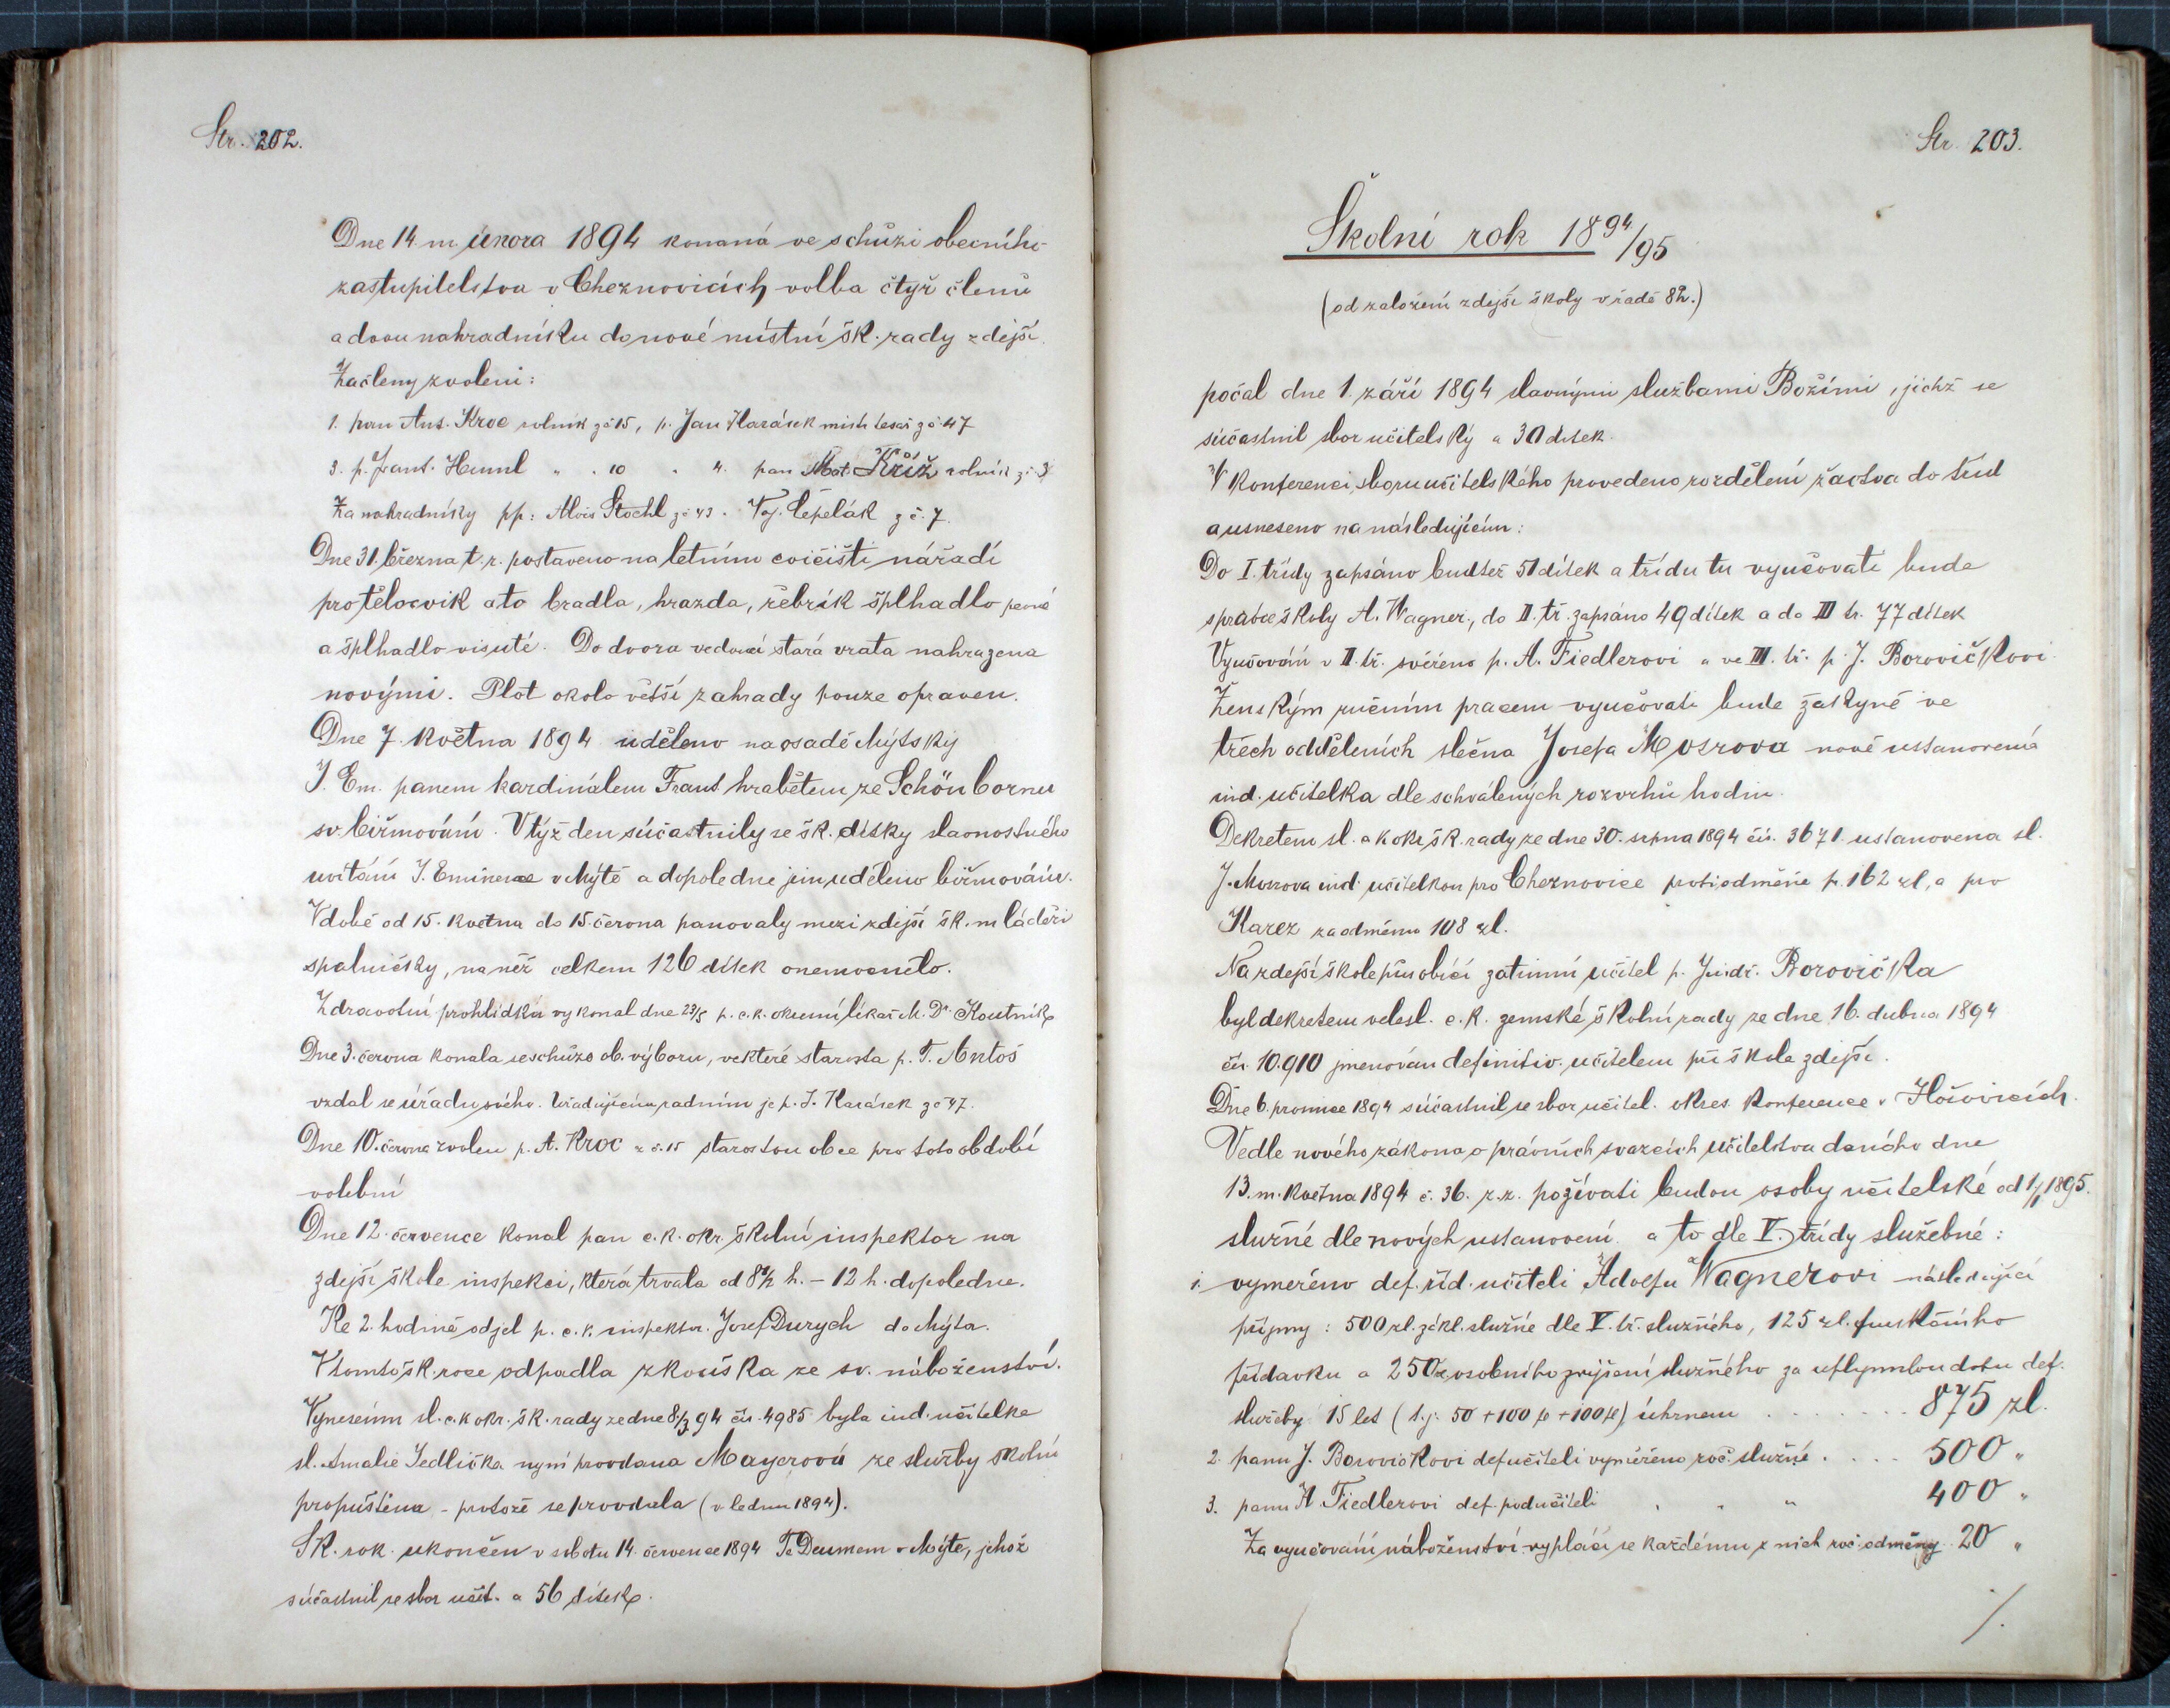 Str. 202.
Dne 14 m února 1894 konaná ve schůzi obecního
zastupitelstva v Cheznovicích volba čtyř členů
a dvou nahradníku do nové místní šk. rady zdejší.
Za členy zvoleni:
1. pan Ant. Kroc rolník z č 15, p. Jan Karásek mistr tesař z č 47
3. p. Frant. Hennl " . 10 " 4. pan Mat. Kříž rolník z č. 3
Za nahradníky pp: Alois Stochl z č 43. Voj. Čepelák z č. 7.
Dne 31. března t. r. postaveno na letním cvičišti nářadí
pro tělocvik a to bradla, hrazda, řebřík šplhadlo pevné
a šplhadlo visuté. Do dvora vedoucí stará vrata nahrazena
novými. Plot okolo větší zahrady pouze opraven.
Dne 7. května 1894 uděleno na osadě Mýtský
J. Em. panem kardinálem Frant hrabětem ze Schönbornu
sv. biřmování. V týž den súčastnily se šk. dítky slavnostného
uvítání J. Eminence v Mýtě a dopoledne jim uděleno biřmování.
V době od 15. května do 15. června panovaly mezi zdejší šk. mládeží
spalničky, na něž celkem 126 dítek onemocnělo.
Zdravotní prohlídku vykonal dne 23/5 p. c. k. okresní lékař M. Dr. Koutník
Dne 3. června konala se schůze ob. výboru, ve které starosta p. T. Antoš
vzdal se úřadu svého. Úřadujícím radním je p. J. Karásek z č 47.
Dne 10. června zvolen p. A. Kroc z č. 15 starostou obce pro toto období
volební
Dne 12. července konal pan c. k. okr. školní inspektor na
zdejší škole inspekci, která trvala od 8 1/2 h. – 12 h. dopoledne.
Ke 2. hodině odjel p. c. k. inspektor. Josef Durych do Mýta.
V tomto šk. roce odpadla zkouška ze sv. náboženství.
Vynesením sl. c. k okr. šk. rady ze dne 8/3 94 čís. 4985 byla ind. učitelka
sl. Amalie Jedlička nyní provdana Mayerová ze služby školní
propuštěna – protože se provdala (v lednu 1894).
Šk. rok ukončen v sobotu 14. července 1894 Te Deumem v Mýtě, jehož
súčastnil se sbor učit. a 56 dítek.
Str. 203.
Školní rok 1894/95
(od založení zdejší školy v řadě 82.)
počal dne 1. září 1894 slavnými službami Božími, jichž se
súčastnil sbor učitelský a 30 dítek.
V konferenci sboru učitelského provedeno rozdělení žactva do tříd
a usneseno na následujícím:
Do I. třídy zapsáno budtež 51 dítek a třídu tu vyučovati bude
správce školy A. Wagner, do II. tř. zapsáno 49 dítek a do III tř. 77 dítek
Vyučování v II. tř. svěřeno p. A. Fiedlerovi a ve III. tř. p. J. Borovičkovi.
Ženským ručním pracem vyučovati bude žákyně ve
třech odděleních slečna Josefa Mosrova nově ustanovená
ind. učitelka dle schválených rozvrhů hodin.
Dekretem sl. c k okr. šk. rady ze dne 30. srpna 1894 čís. 3671. ustanovena sl.
J. Mosrova ind. učitelkou pro Cheznovice proti odměně p. 162 zl, a pro
Karez za odměnu 108 zl.
Na zdejší škole působící zatimní učitel p. Jindř. Borovička
byl dekretem velesl. c. k. zemské školní rady ze dne 16. dubna 1894
čís. 10.910 jmenován definitiv. učitelem při škole zdejší.
Dne 6. prosince 1894 súčastnil se sbor učitel. okres. konference v Hořovicích.
Vedle nového zákona o právních svazcích učitelstva daného dne
13. m. května 1894 č. 36. z. z. požívati budou osoby učitelské od 1/1 1895.
služné dle nových ustanovení a to dle V. třídy služebné:
1. vyměřeno def. říd. učiteli Adolfu Wagnerovi následující
příjmy: 500 zl. zákl. služné dle V. tř. služného, 125 zl. funkčního
přídavku a 250 zl osobního zvýšení služného za uplynulou dobu def.
služby 15 let (t. j. 50 + 100 + 100) úhrnem . . . . . . . 875 zl.
2. panu J. Borovičkovi def učiteli vyměřeno roč. služné . . . . 500 "
3. panu A. Fiedlerovi def. podučiteli " " " 400 "
Za vyučování náboženství vyplácí se každému z nich roč. odměny 20 "
/.